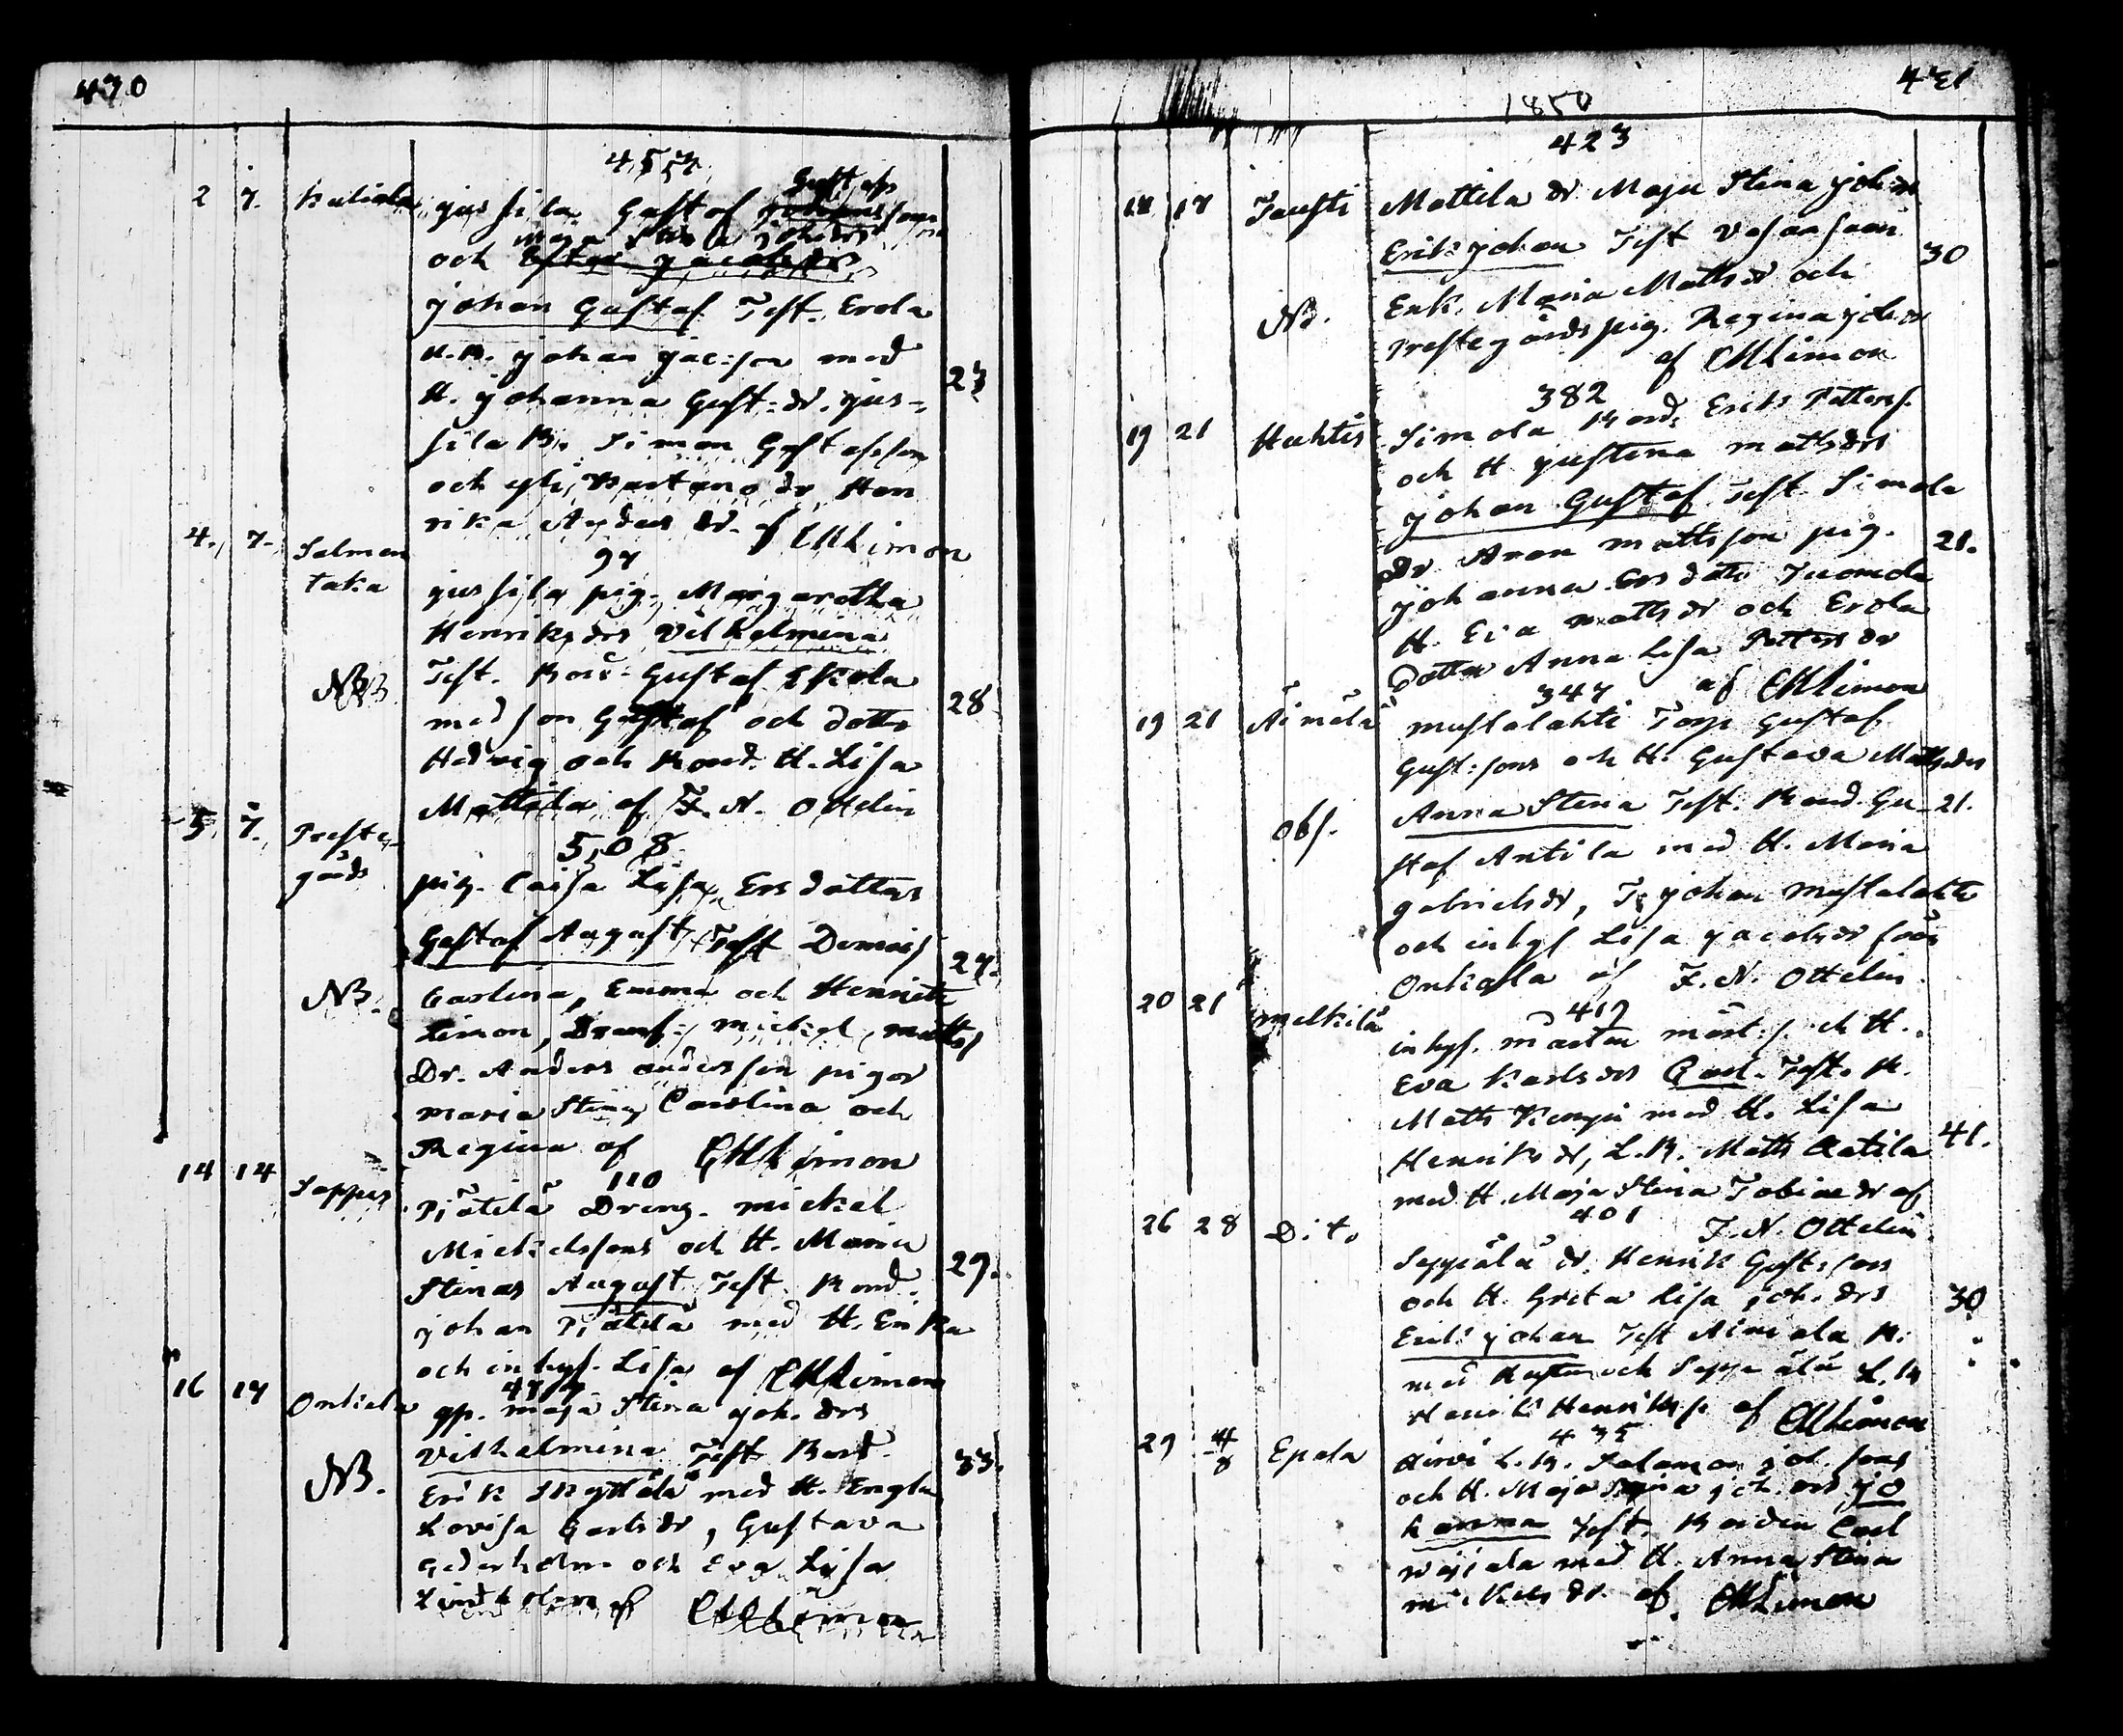 430
457
2 7. Kuliala jussila Gustaf Gustafs sons
Maja Stina Joh:drs
och
Johan Gustaf Test. Erola
u.B. Johan Jac:son med 23
H. Johanna Gust:dr. jus-
sila B. Simon Gustafsson
och Bastano dr. Hen
rika Anders dr. af CHLimon
97
4. 7. Salmen
taka
jussila pig. Margaretha
Henriksdrs Vilhelmina
NB Test. Bond: Gustaf Eskola
med son Gustaf och dotter 28
Hedvig och Bond. H. Lisa
Mattila af F. N. Ottelin
508
5 7. Preste-
gårds
pig. Caisa Lisa Ersdotters
Gustaf August Test Demois 27.
NB. Carolina, Emma och Henriette
Limon, Mickel Matts
Dr. Anders Andersson pigor
Maria Stina Carolina och
Regina af CHLimon
110
14 14 Soppis Pjätilä Dreng. Mickel
Mickelssons och H. Maria
Stinas August Test. Bond. 29.
Johan Pjätilä med H. Erika
och inhys. Lisa af CHLimon
16 17 Onkiala gp. Maja Stina Joh. drs
Vilhelmina Test. Bond. 33.
NB. Erik Skyttälä med H. Engla
Lovisa Carlsdr, Gustava
Cederholm och Eva Lisa
Lindholm af CHLimon
431
1850
423
18 17 Tausti Mattila dr Maja Stina Joh:drs
Erik Johan Test Vesansuni 30
NB. Enk. Maria Mattsdr och
Prestegårds pig. Regina Joh:dr
af CHLimon
382
19 21 Huhtis Simola Bond. Erik Petters.
och H Justina Mattsdrs
Johan Gustaf Test. Simola
Dr Aron Mattsson pig. 21.
Johanna Ersdotr Tuomola
H. Eva Mattsdr och Erola
Dotter Anna Lisa Pettersdr
af CHLimon
347
19 21 Äimälä Mustalahti Torp Gustaf
Gust:sons och H. Gustava Mattsdrs
Anna Stina Test. Bond. Gu- 21.
Obs. staf Antila med H. Maria
Gabrielsdr, T. Johan Mustalahti
och inhys Lisa Jacobsdr från
Onkiala af F. N. Ottelin
419
20 21 Melkilä inhys. Mårten Mårt.s. och H.
Eva Karlsdrs Carl. Test. B.
Matts Kenpi med H. Lisa
Henriksdr, L.B. Matts Aatila 41.
med H. Maja Stina Tobiaedr af
F. N. Ottelin
401
26 28 Dito Seppälä dr. Henrik Gust:sons
och H. Greta Lisa Joh. drs 30
Erik Johan Test Äimälä B.
med Hustru och Seppälä L.B
Henrik Henriks. af CHLimon
435
29 4/8 Epola Hirvi L.B. Salomon Joh. sons
och H. Maja Stina Joh. drs Jo
hanna Test. Bonden Carl
med H. Anna Stina
Mickels dr. af. CHLimon